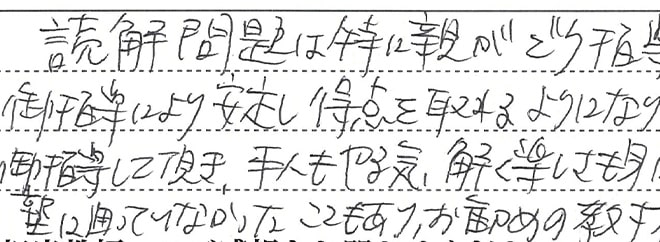 読解問題は特に親がどう指導
御指導により安定し得点を取れるようになり
御指導して頂き、本人もやる気、解く楽しさも身に
塾に通っていなかったこともあり、お勧めの教材